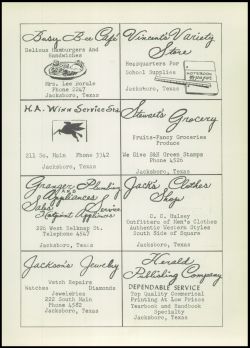 Busy Bee Cafe
Delicous Hamburgers And
Sandwiches
Mrs. Lee
Phone 2247
Jacksboro, Texas
Vincent's Variety
Store
Headquarters For
School Supplies
Jacksboro, Texas
NOTEBOOK
H.A. Winn Service Sta.
211 So. Main Phone 3142
Jacksboro, Texas
Stewart's Grocery
Fruits-Fancy Groceries
Produce
We Give S&H Green Stamps
Phone 4520
Jacksboro, Texas
Granger Plumbing
AND
Appliances
Sales Service
Hotpoint Appliances
225 West Belknap St.
Telephone 4547
Jacksboro, Texas
Jack's Clothes
Shop
O. C. Halsey
Outfitters of Men's Clothes
Authentic Western Styles
South Side of Square
Jacksboro, Texas
Jackson's Jewelry
Watch Repairs
Watches Diamonds
Jewelries
222 South Main
Phone 4582
Jacksboro, Texas
Herald
Publishing Company
DEPENDABLE SERVICE
Top Quality Commerical
Printing At Low Prices
Yearbook and Handbook
Specialty
Jacksboro, Texas